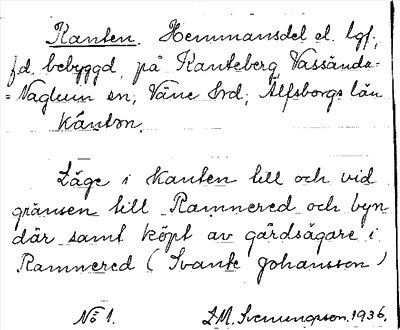 Kanten. Hemmansdel el. lgf.,
f.d. bebyggd, på Kanteberg Vassända-
=Naglum sn, Väne hrd, Älfsborgs län
kánton.
Läge i kanten till och vid
gränsen till Ramnered och byn
där samt köpt av gårdsägare i
Ramnered (Svante Johansson)
No 1. L.M. Svenungsson. 1936.